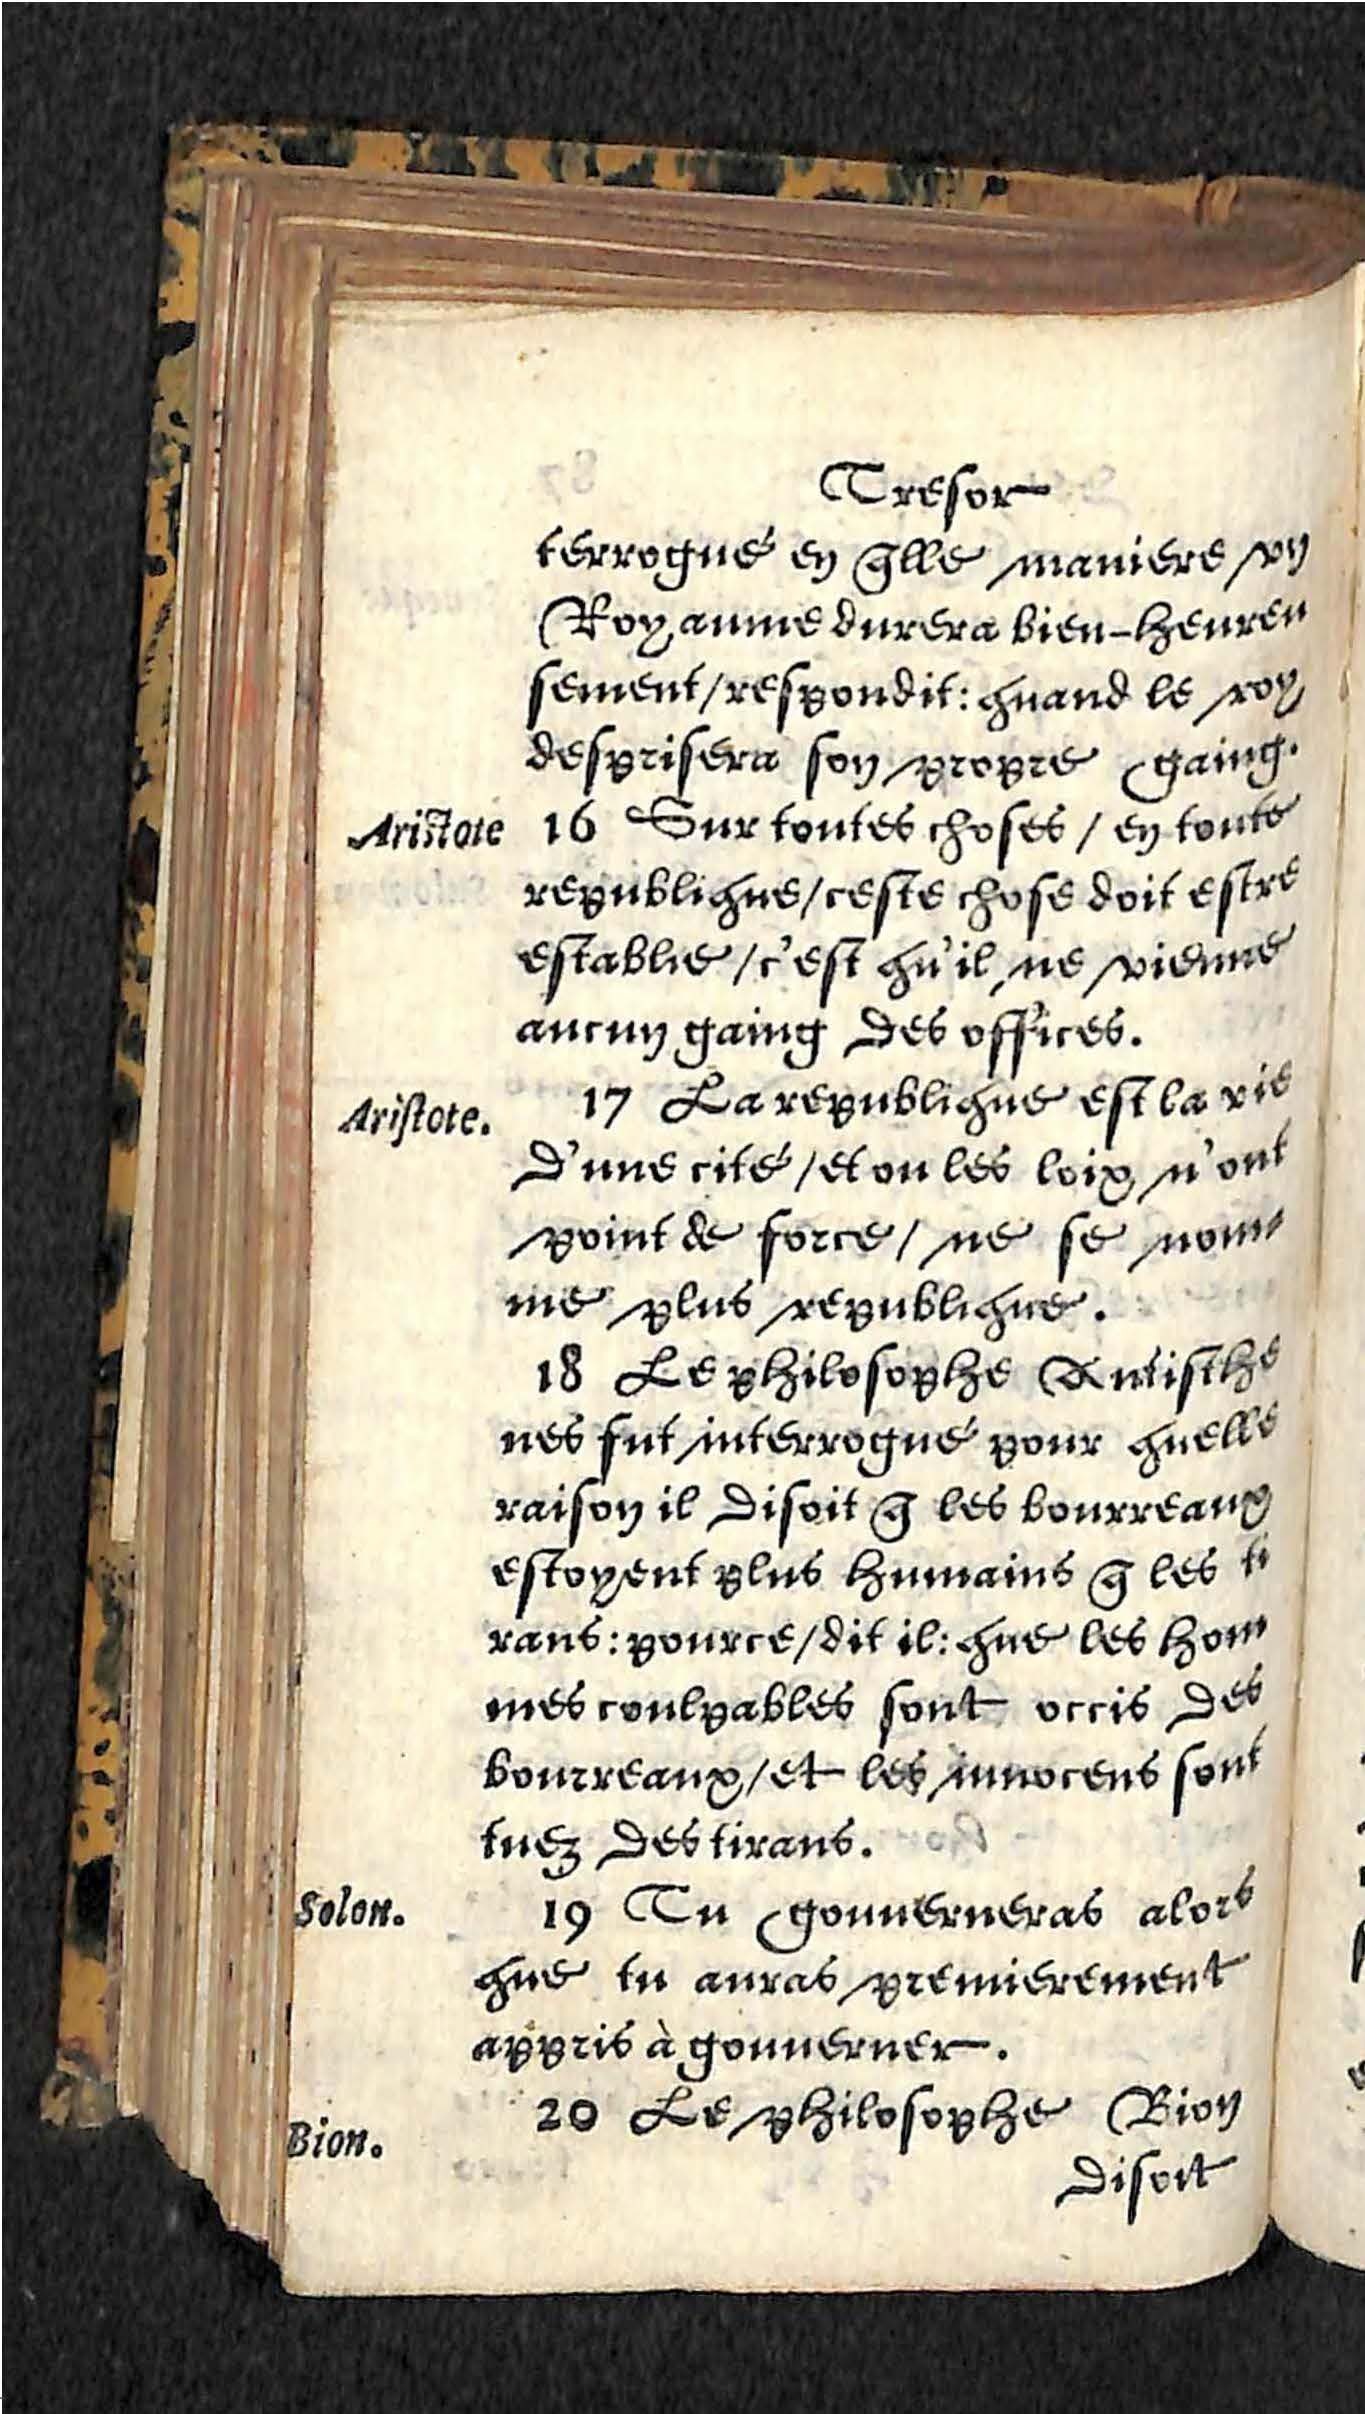 Tresor
terrogué en q̃lle maniere vn
Royaume durera bien-heureu
sement/respondit: quand le roy
desprisera son propre gaing.
Aristote 16 Sur toutes choses / en toute
republique/ceste chose doit estre
establie /c'est qu'il ne vienne
aucun gaing des offices.
Aristote. 17 La republique est la vie
d'une cité /et ou les loix n'ont
point de force / ne se nom-
me plus republique.
18 Le philosophe Antisthe
nes fut interrogué pour quelle
raison il disoit q̃ les bourreaux
estoyent plus humains q̃ les ti
rans: pource/dit il: que les hom
mes coulpables sont occis des
bourreaux/et les innocens sont
tuez des tirans.
Solon. 19 Tu gouuerneras alors
que tu auras premierement
appris à gouuerner.
Bion. 20 Le philosophe Bion
disoit